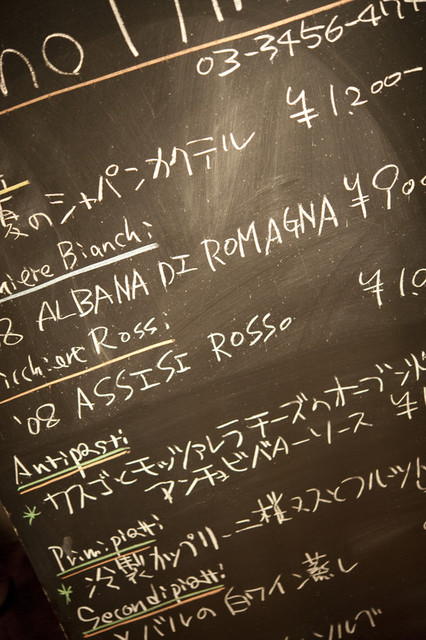 no
03-3456-47
夏のシャパンカクテル ¥1.200-
hiere Bianchi
8 ALBANA DI ROMAGNA ¥900
icchiere Rossi ¥1.0
'08 ASSISI ROSSO
Antipasti
* カスゴとモッツァレラチーズのオーブン
アンチョビバターソース ¥1
Primi piatti
* 冷製カッペリーニ
とフルーツ
Secondi piatti
メバルの白ワイン蒸し